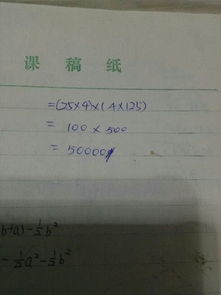 课 稿 纸
=(25×4)×(4×125)
= 100 × 500
= 50000
b+a)-½b²
-½a²-½b²